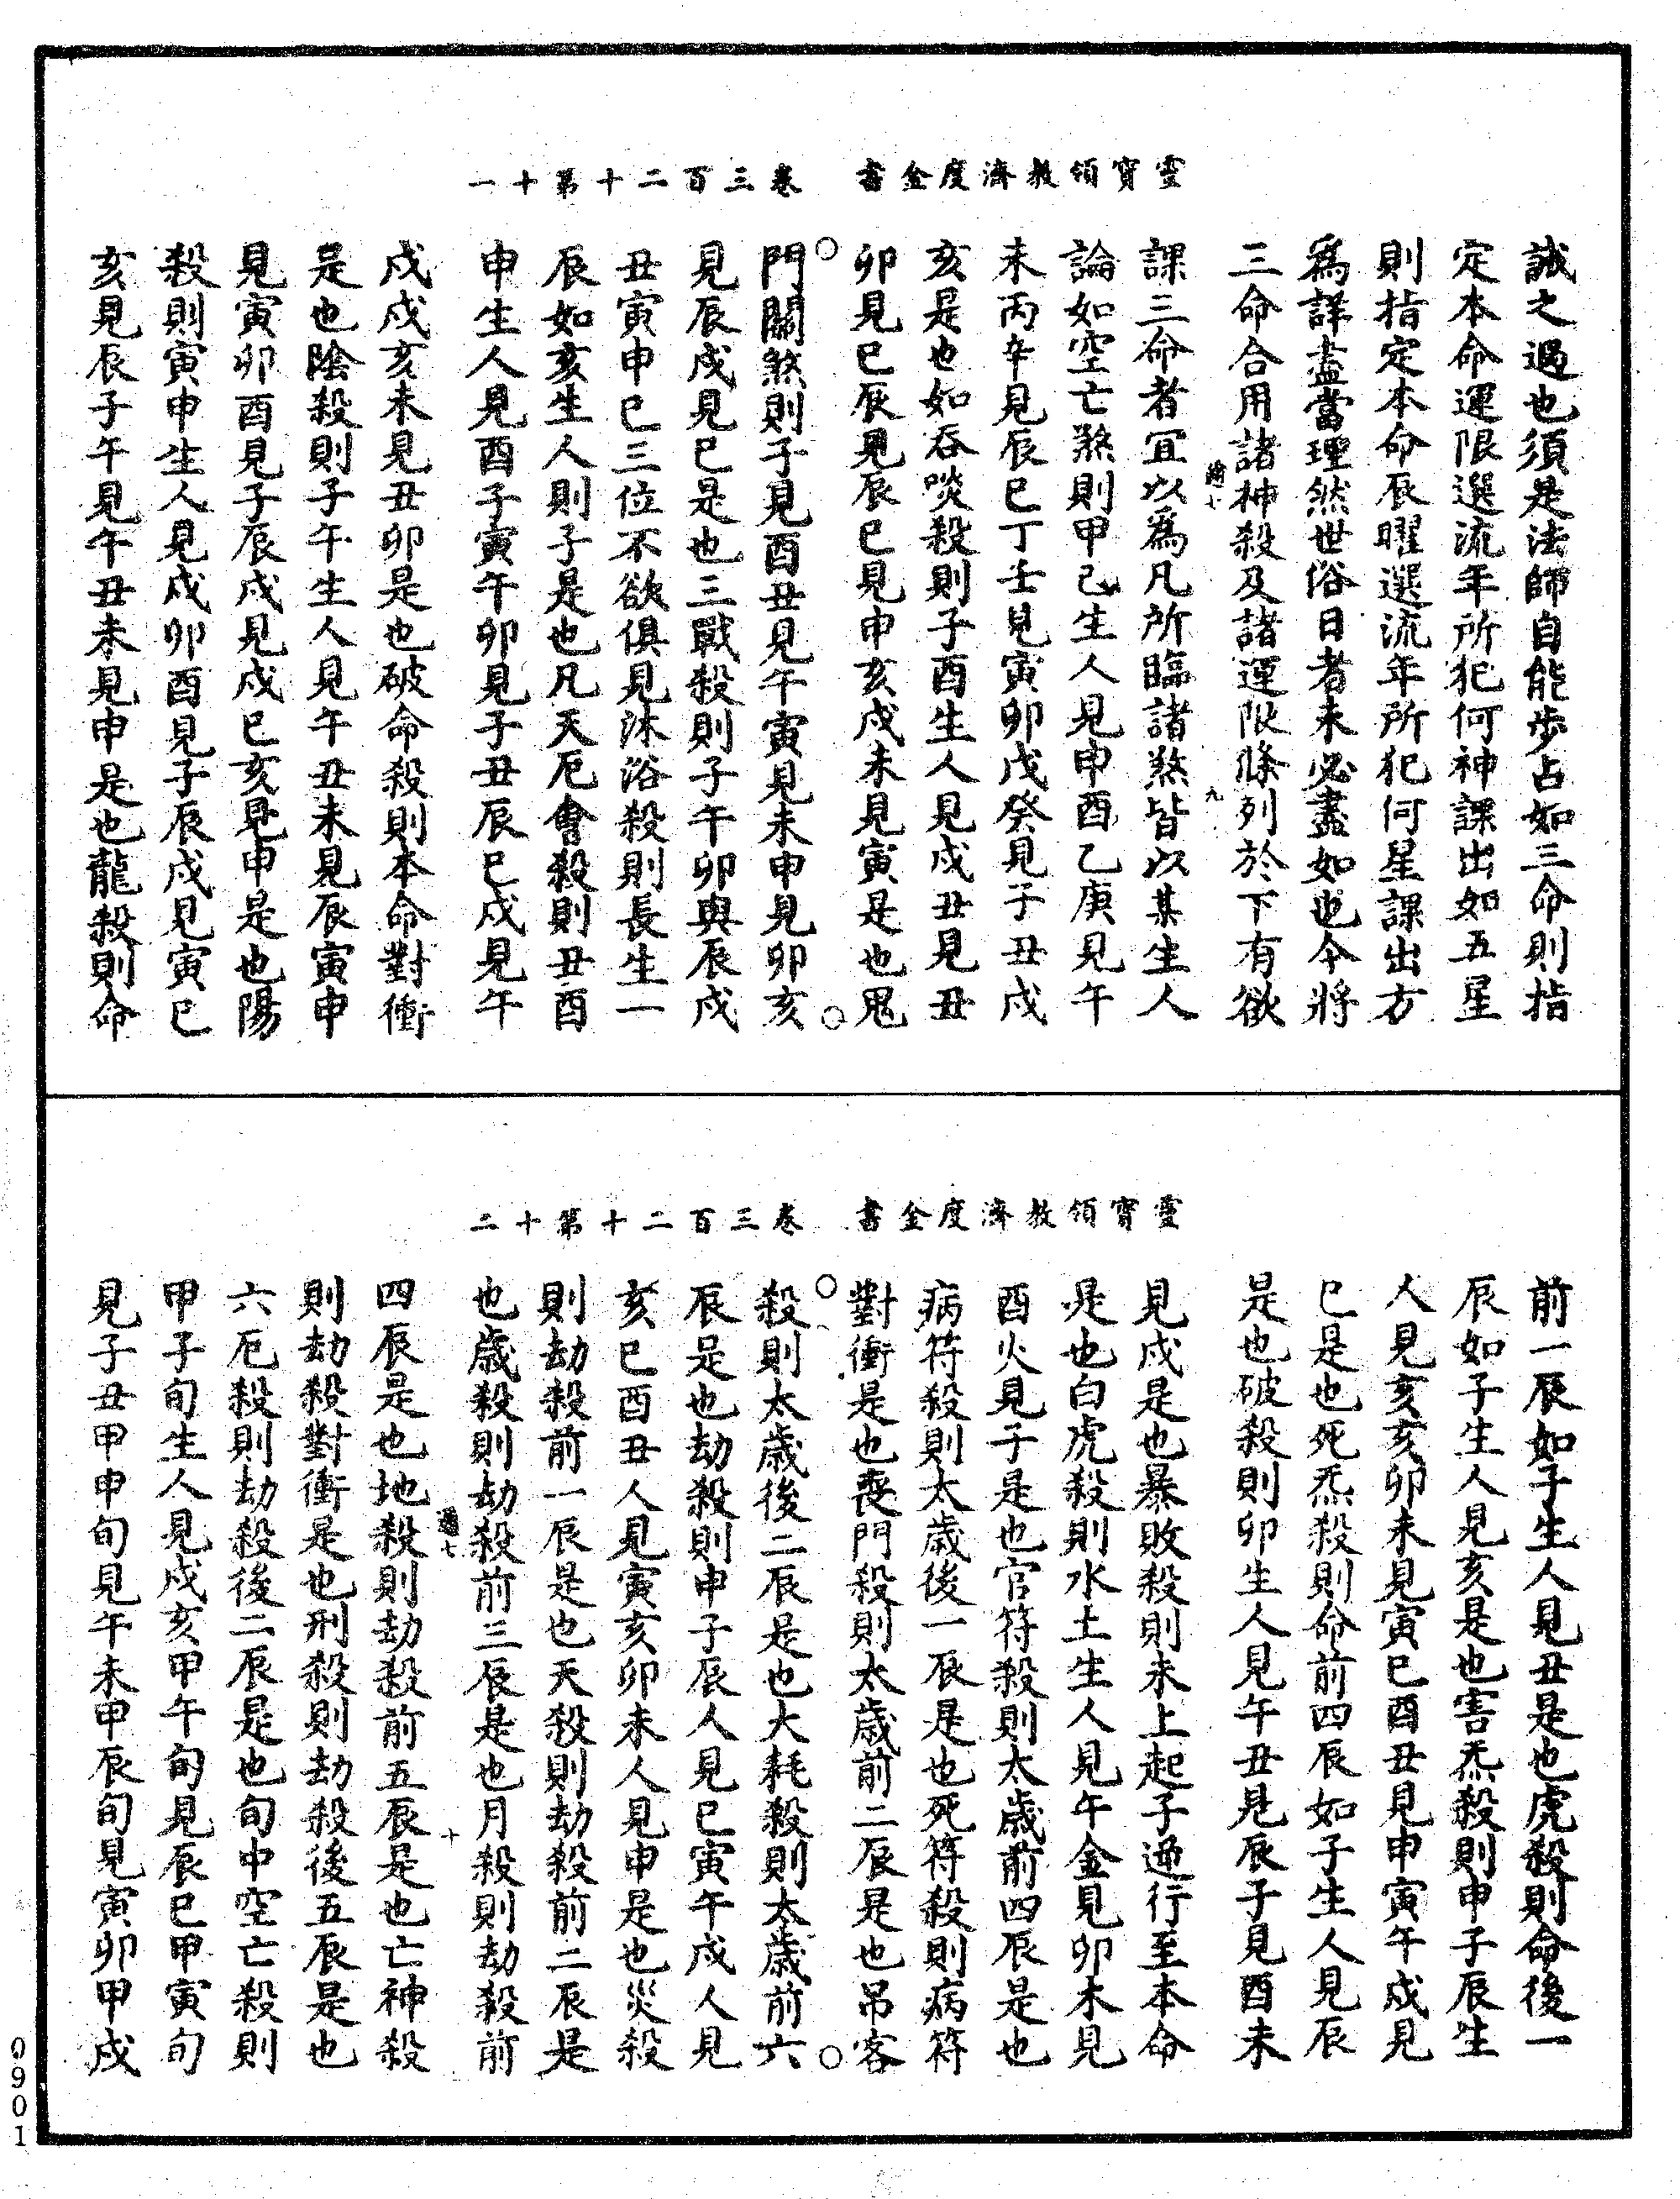 靈寶領教濟度金書　卷三百二十第十一
誠之過也須是法師自能步占如三命則指
定本命運限選流年所犯何神課出如五星
則指定本命辰曜選流年所犯何星課出方
爲詳盡當理然世俗日者未必盡如也今將
三命合用諸神殺及諸運限條列於下有欲
九
課三命者宜以爲凡所臨諸煞皆以某生人
論如空亡煞則甲己生人見申酉乙庚見午
未丙辛見辰巳丁壬見寅卯戊癸見子丑戌
亥是也如吞啖殺則子酉生人見戌丑見丑
卯見巳辰見辰巳見申亥戌未見寅是也鬼
門關煞則子見酉丑見午寅見未申見卯亥
見辰戌見巳是也三戰殺則子午卯與辰戌
丑寅申巳三位不欲俱見沐浴殺則長生一
辰如亥生人則子是也凡天厄會殺則丑酉
申生人見酉子寅午卯見子丑辰巳戌見午
戌戌亥未見丑卯是也破命殺則本命對衝
是也陰殺則子午生人見午丑未見辰寅申
見寅卯酉見子辰戌見戌巳亥見申是也陽
殺則寅申生人見戌卯酉見子辰戌見寅巳
亥見辰子午見午丑未見申是也龍殺則命
靈寶領教濟度金書　卷三百二十第十二
前一辰如子生人見丑是也虎殺則命後一
辰如子生人見亥是也害炁殺則申子辰生
人見亥亥卯未見寅巳酉丑見申寅午戌見
巳是也死炁殺則命前四辰如子生人見辰
是也破殺則卯生人見午丑見辰子見酉未
見戌是也暴敗殺則未上起子逆行至本命
是也白虎殺則水土生人見午金見卯木見
酉火見子是也官符殺則太歲前四辰是也
病符殺則太歲後一辰是也死符殺則病符
對衝是也喪門殺則太歲前二辰是也吊客
殺則太歲後二辰是也大耗殺則太歲前六
辰是也劫殺則申子辰人見巳寅午戌人見
亥巳酉丑人見寅亥卯未人見申是也災殺
則劫殺前一辰是也天殺則劫殺前二辰是
也歲殺則劫殺前三辰是也月殺則劫殺前
十
四辰是也地殺則劫殺前五辰是也亡神殺
則劫殺對衝是也刑殺則劫殺後五辰是也
六厄殺則劫殺後二辰是也旬中空亡殺則
甲子旬生人見戌亥甲午旬見辰巳甲寅旬
見子丑甲申旬見午未甲辰旬見寅卯甲戌
0901